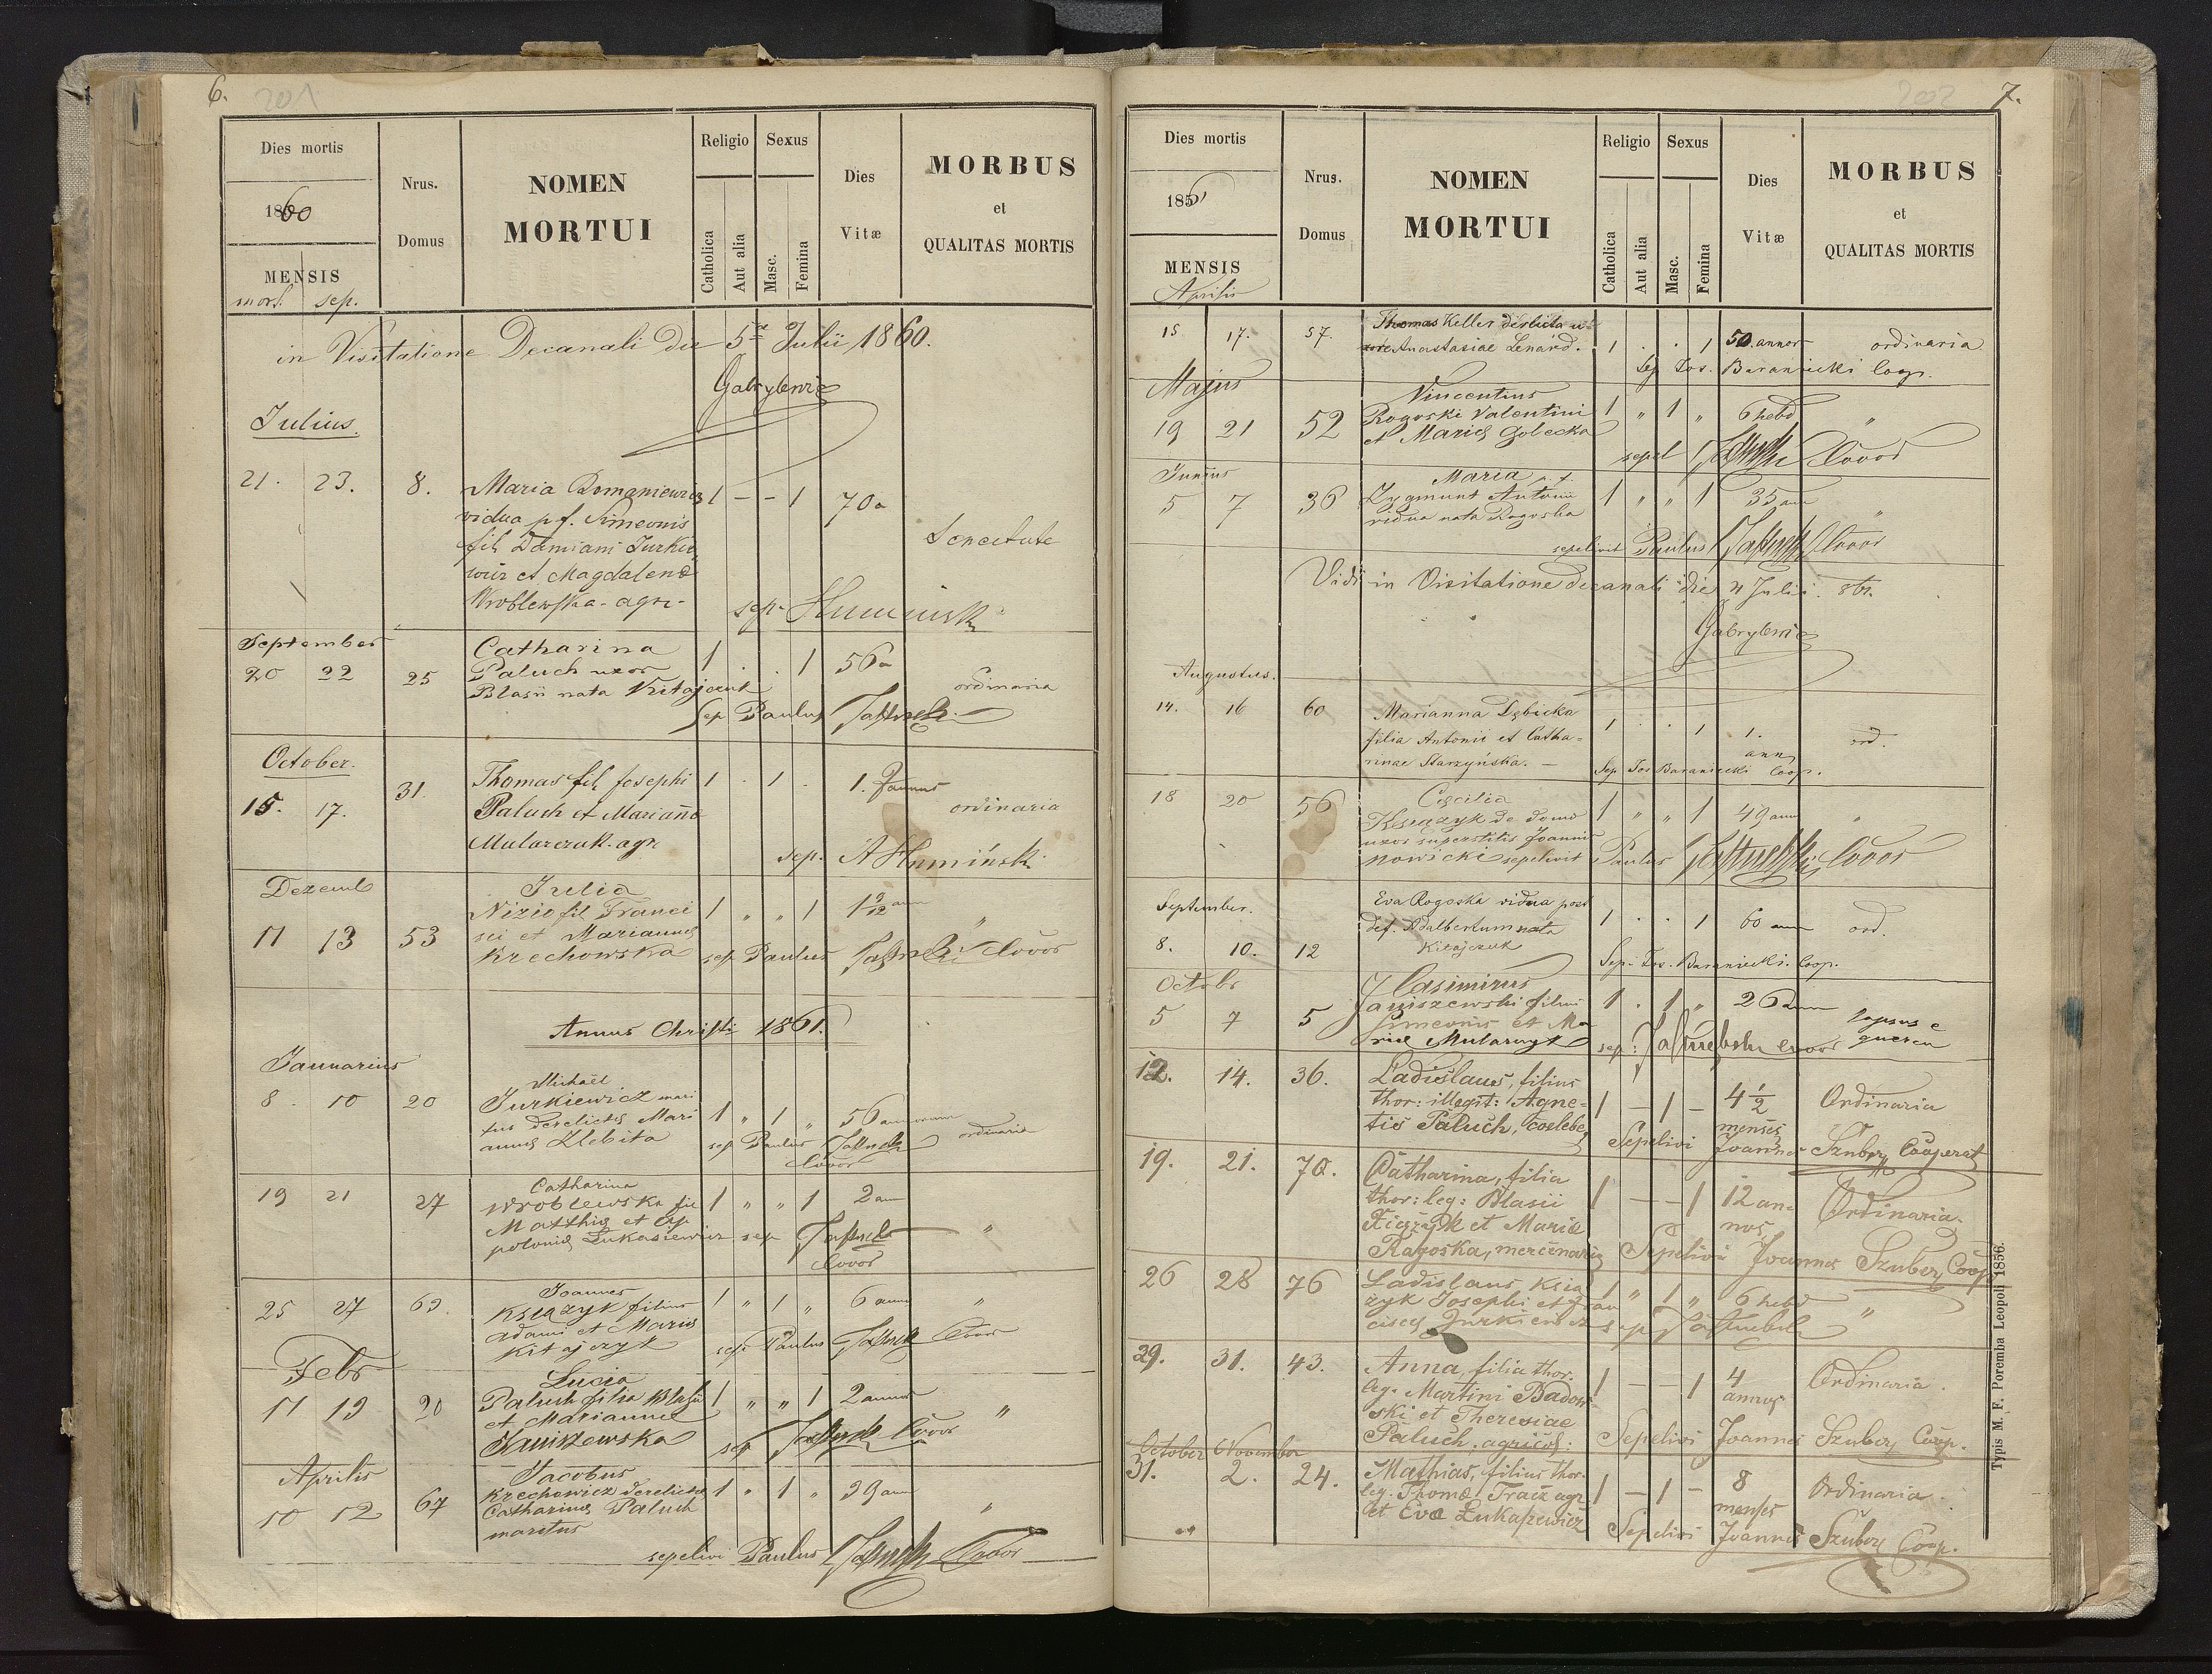 6. 201
Dies mortis
1860
MENSIS
mort. sep.
Nrus.
Domus
NOMEN
MORTUI
Religio
Catholica
Aut alia
Sexus
Masc.
Femina
Dies
Vitæ
MORBUS
et
QUALITAS MORTIS
in Visitatione Decanali die 5ta Julii 1860.
Gabrylewicz
Julius.
21. 23. 8. Maria Romaniewicz 1 - - 1 70a
vidua p. f. Simeonis
fil Damiani Jurkie Senectute
wicz et Magdalenæ
Wroblewska - agr. - sep. Humiński
September Catharina
20 22 25 Paluch uxor 1 . . 1 56a
Blasii nata Kitajczuk ordinaria
Sep Paulus
October.
15. 17. 31. Thomas fil Josephi 1 . 1 . 1. annus
Paluch et Marianæ ordinaria
Mularczuk. agr. sep. A Humiński
Dezemb Julia
11 13 53 Nizio fil Franci 1 " " 1 1 9/12 ann
sci et Mariannæ "
Krechowska sep Paulus Coo͏̈or
Annus Christi 1861.
Januarius
8. 10 20 Michaël
Jurkiewicz mari 1 " 1 " 56 annorum
tus derelictæ Mari
annæ Zlebita sep Paulus ordinaria
19 21 27 Catharina
Wroblewska fil 1 " " 1 2 ann
Matthiæ et Ap "
poloniæ Lukasiewicz sep
25 27 63. Joannes
Ksiązyk filius 1 " 1 " 6 ann "
Adami et Mariæ
Kitajczyk sep Paulus
Febr Lucia
17 19 20 Paluch filia Blasii 1 " " 1 2 annor
et Mariannæ "
Janiszewska sep
Aprilis Jacobus
10 12 67 Krechowicz derelictæ 1 " 1 " 39 ann
Catharinæ Paluch "
maritus
sepelivi Paulus
202 7.
Dies mortis
1856
MENSIS
Aprilis
Nrus.
Domus
NOMEN
MORTUI
Religio
Catholica
Aut alia
Sexus
Masc.
Femina
Dies
Vitæ
MORBUS
et
QUALITAS MORTIS
15 17. 57. Thomas Keller derelicta
Anastasiae Lenard. 1 . . 1 50. annor ordinaria
Sep Jos. Baraniecki Coop.
Majus Vincentius
19 21 52 Rogoski Valentini 1 " 1 " 6 hebd "
et Mariæ Golecka
sepel
Junius Maria
5 7 36 Zygmunt Antonii 1 " " 1 35 ann "
vidua nata Rogoska
sepelivit Paulus
Vidi in Visitatione decanali die 4 Julii 861.
Gabrylewicz
Augustus.
14. 16 60 Marianna Dębicka
filia Antonii et Catha- 1 . . 1 1. ann ord.
rinae Starzyńska. - Sep Jos Baraniecki Coop.
18 20 56 Cęcilia
Ksiązyk de domo 1 " " 1 49 ann "
uxor superstitis Joannis
Nowicki sepelivit Paulus
September. Eva Rogoska vidua post
def. Adalbertum nata 1 . . 1 60 ann ord.
8. 10. 12 Kitajczuk Sep. Jos. Baraniecki. Coop.
Octobr Casimirus
5 7 5 Janiszewski filius 1 . 1 " 26 ann lapsus e
Simeonis et Ma quercu
riæ Mularczyk sep:
12. 14. 36. Ladislaus, filius
thor: illegit: Agne- 1 - 1 - 4 1/2 Ordinaria
tis Paluch, coelebs menses
Sepelivi Joannes Szuberz Cooperat
19. 21. 70. Catharina, filia
thor: leg: Blasii 1 - - 1 12 an- Ordinaria.
Xiązyk et Mariæ nos
Ragoska, mercenariæ Sepelivi Joannes Szuberz Coop
26 28 76 Ladislaus Ksią 1 " 1 " 6 hebd "
zyk Josephi et Fran
ciscæ Jurkiewicz sep
29. 31. 43. Anna, filia thor.
leg. Martini Badow 1 - - 1 4 Ordinaria.
ski et Theresiae annos
Paluch, agricol: Sepelivi Joannes Szuberz Coop.
October November
31. 2. 24. Mathias, filius thor.
leg. Thomæ Tracz agr. 1 - 1 - 8 Ordinaria.
et Evæ Łukaszewicz menses
Sepelivi Joannes Szuberz Coop.
Typis M. F. Poremba Leopoli 1856.